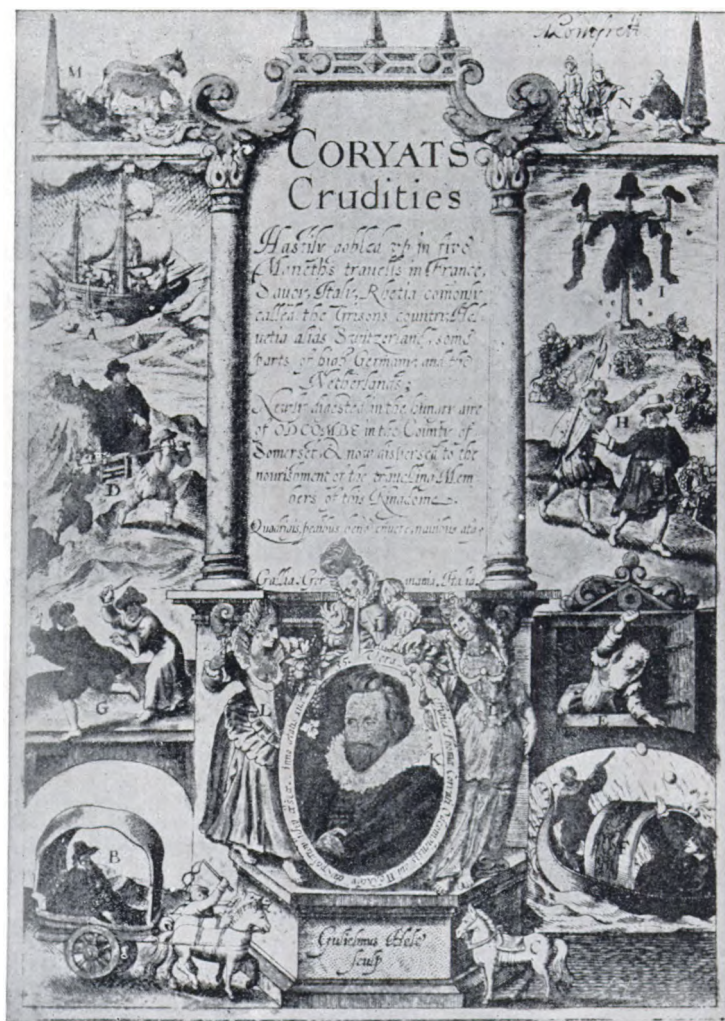 M
N
CORYATS
Crudities
Hastily gobled vp in five
Moneth's travells in France,
Savoy, Italy, Rhetia comonly
called the Grisons country, Hel
uetia aliàs Switzerland, some
parts of high Germany, and the
Netherlands;
Newly digested in the hungry aire
of ODCOMBE in the County of
Somerset, & now dispersed to the
nourishment of the trauelling Mem
bers of this Kingdome.
A
I
H
D
Gallia Ger mania, Italia
G
E
L
K
F
B
Gulielmus Hole
sculp